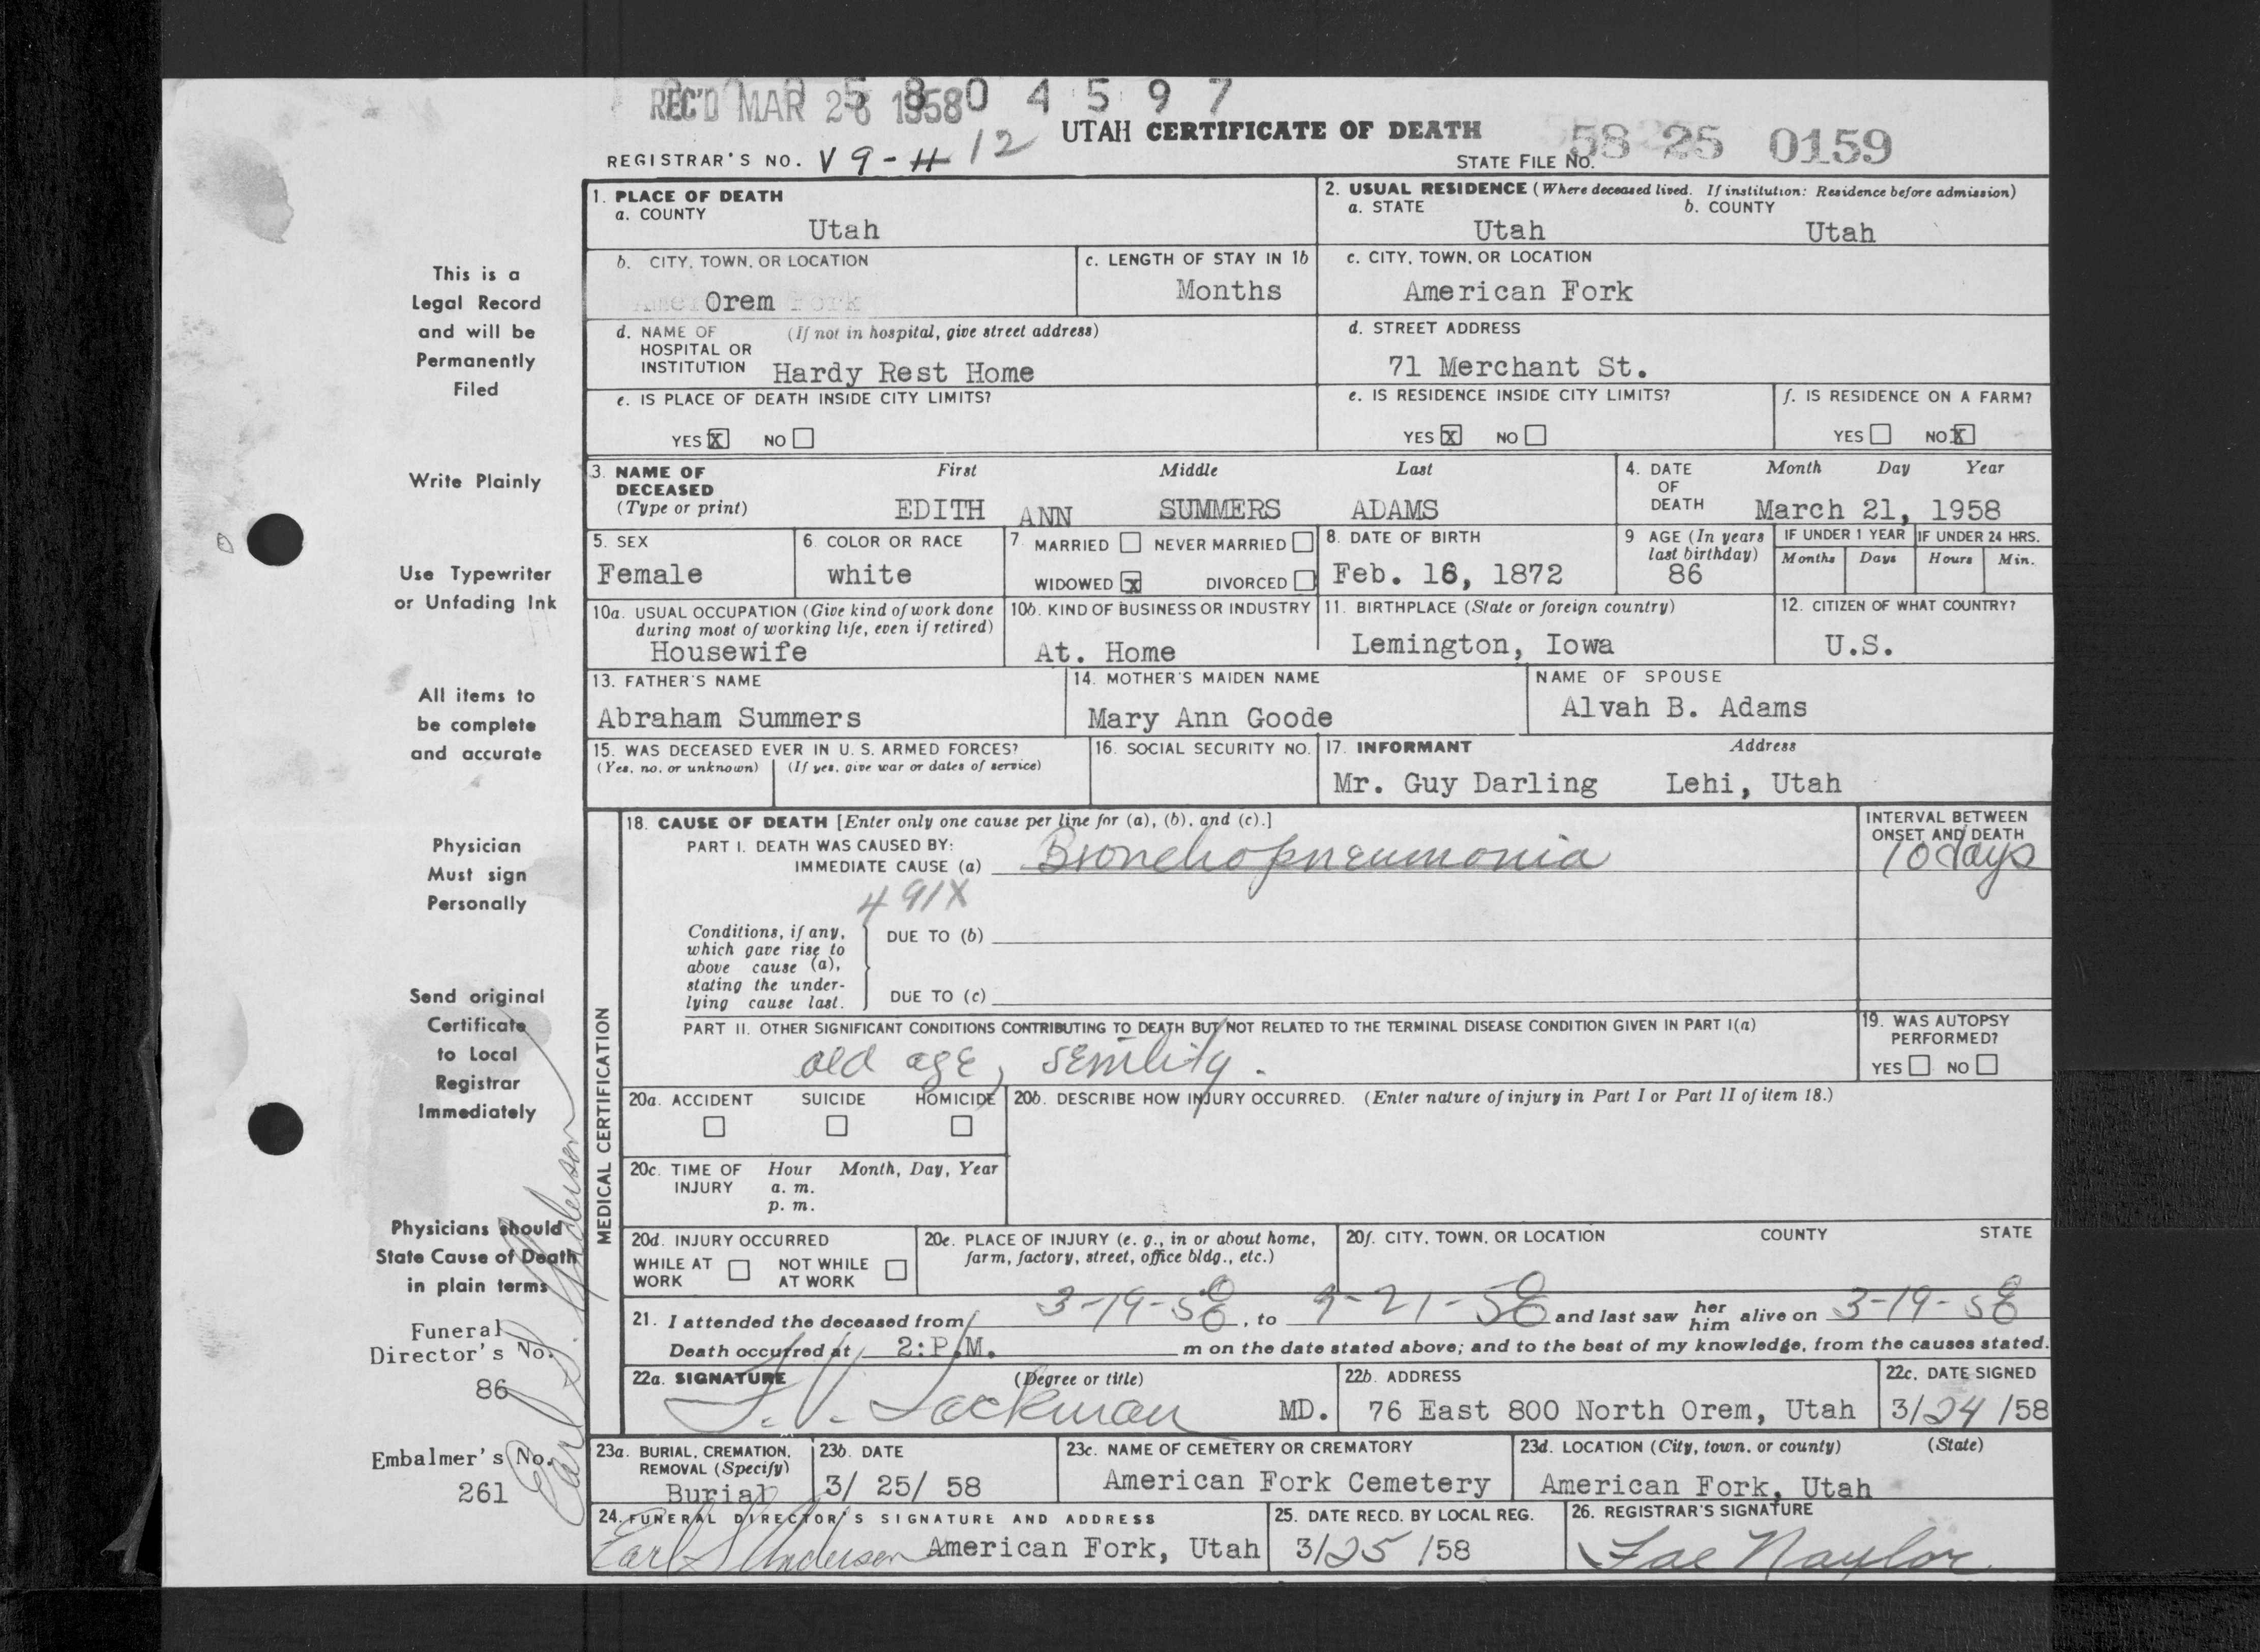 REC'D MAR 26 1958
5 8 0 4 5 9 7
UTAH CERTIFICATE OF DEATH
REGISTRAR'S NO. V 9 - 12
STATE FILE NO. 58 25 0159
1. PLACE OF DEATH
a. COUNTY
Utah
2. USUAL RESIDENCE (Where deceased lived. If institution: Residence before admission)
a. STATE b. COUNTY
Utah Utah
b. CITY, TOWN, OR LOCATION
Orem
c. LENGTH OF STAY IN 1b
Months
c. CITY, TOWN, OR LOCATION
American Fork
d. NAME OF (If not in hospital, give street address)
HOSPITAL OR
INSTITUTION Hardy Rest Home
d. STREET ADDRESS
71 Merchant St.
e. IS PLACE OF DEATH INSIDE CITY LIMITS?
YES X NO
e. IS RESIDENCE INSIDE CITY LIMITS?
YES X NO
f. IS RESIDENCE ON A FARM?
YES NO X
3. NAME OF First Middle Last
DECEASED
(Type or print) EDITH ANN SUMMERS ADAMS
4. DATE Month Day Year
OF
DEATH March 21, 1958
5. SEX
Female
6. COLOR OR RACE
white
7. MARRIED NEVER MARRIED
WIDOWED X DIVORCED
8. DATE OF BIRTH
Feb. 16, 1872
9 AGE (In years
last birthday)
86
IF UNDER 1 YEAR IF UNDER 24 HRS.
Months Days Hours Min.
10a. USUAL OCCUPATION (Give kind of work done
during most of working life, even if retired)
Housewife
10b. KIND OF BUSINESS OR INDUSTRY
At. Home
11. BIRTHPLACE (State or foreign country)
Lemington, Iowa
12. CITIZEN OF WHAT COUNTRY?
U.S.
13. FATHER'S NAME
Abraham Summers
14. MOTHER'S MAIDEN NAME
Mary Ann Goode
NAME OF SPOUSE
Alvah B. Adams
15. WAS DECEASED EVER IN U. S. ARMED FORCES?
(Yes, no, or unknown) (If yes, give war or dates of service)
16. SOCIAL SECURITY NO.
17. INFORMANT Address
Mr. Guy Darling Lehi, Utah
MEDICAL CERTIFICATION
18. CAUSE OF DEATH [Enter only one cause per line for (a), (b), and (c).]
PART I. DEATH WAS CAUSED BY:
IMMEDIATE CAUSE (a) Bronchopneumonia
INTERVAL BETWEEN
ONSET AND DEATH
10 days
491X
Conditions, if any,
which gave rise to
above cause (a),
stating the under-
lying cause last.
DUE TO (b)
DUE TO (c)
PART II. OTHER SIGNIFICANT CONDITIONS CONTRIBUTING TO DEATH BUT NOT RELATED TO THE TERMINAL DISEASE CONDITION GIVEN IN PART I(a)
old age, senility.
19. WAS AUTOPSY
PERFORMED?
YES NO
20a. ACCIDENT SUICIDE HOMICIDE
20b. DESCRIBE HOW INJURY OCCURRED. (Enter nature of injury in Part I or Part II of item 18.)
20c. TIME OF Hour Month, Day, Year
INJURY a. m.
p. m.
20d. INJURY OCCURRED
WHILE AT NOT WHILE
WORK AT WORK
20e. PLACE OF INJURY (e. g., in or about home,
farm, factory, street, office bldg., etc.)
20f. CITY, TOWN, OR LOCATION COUNTY STATE
21. I attended the deceased from 3-19-58, to 3-21-58 and last saw her him alive on 3-19-58
Death occurred at 2:P.M. m on the date stated above; and to the best of my knowledge, from the causes stated.
22a. SIGNATURE (Degree or title)
MD.
22b. ADDRESS
76 East 800 North Orem, Utah
22c. DATE SIGNED
3/24/58
23a. BURIAL, CREMATION,
REMOVAL (Specify)
Burial
23b. DATE
3/ 25/ 58
23c. NAME OF CEMETERY OR CREMATORY
American Fork Cemetery
23d. LOCATION (City, town, or county) (State)
American Fork, Utah
24. FUNERAL DIRECTOR'S SIGNATURE AND ADDRESS
Earl S Anderson American Fork, Utah
25. DATE RECD. BY LOCAL REG.
3/25/58
26. REGISTRAR'S SIGNATURE
Fae Naylor
This is a
Legal Record
and will be
Permanently
Filed
Write Plainly
Use Typewriter
or Unfading Ink
All items to
be complete
and accurate
Physician
Must sign
Personally
Send original
Certificate
to Local
Registrar
Immediately
Physicians should
State Cause of Death
in plain terms
Funeral
Director's No.
86
Embalmer's No.
261
Earl S. Anderson